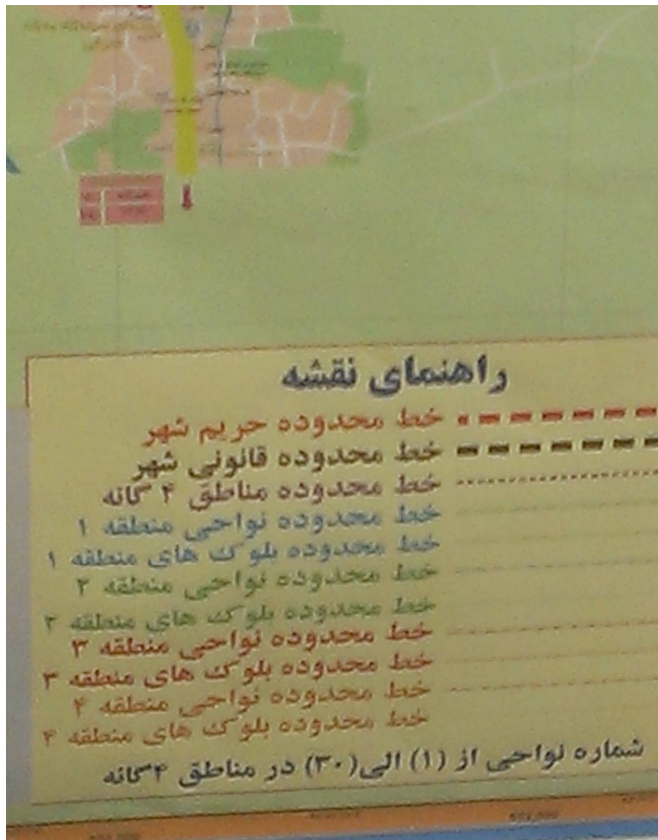 راهنمای نقشه
خط محدوده حریم شهر
خط محدوده قانونی شهر
خط محدوده مناطق ۴ گانه
خط محدوده نواحی منطقه ۱
خط محدوده بلوک های منطقه ۱
خط محدوده نواحی منطقه ۲
خط محدوده بلوک های منطقه ۲
خط محدوده نواحی منطقه ۳
خط محدوده بلوک های منطقه ۳
خط محدوده نواحی منطقه ۴
خط محدوده بلوک های منطقه ۴
شماره نواحی از (۱) الی (۳۰) در مناطق ۴گانه